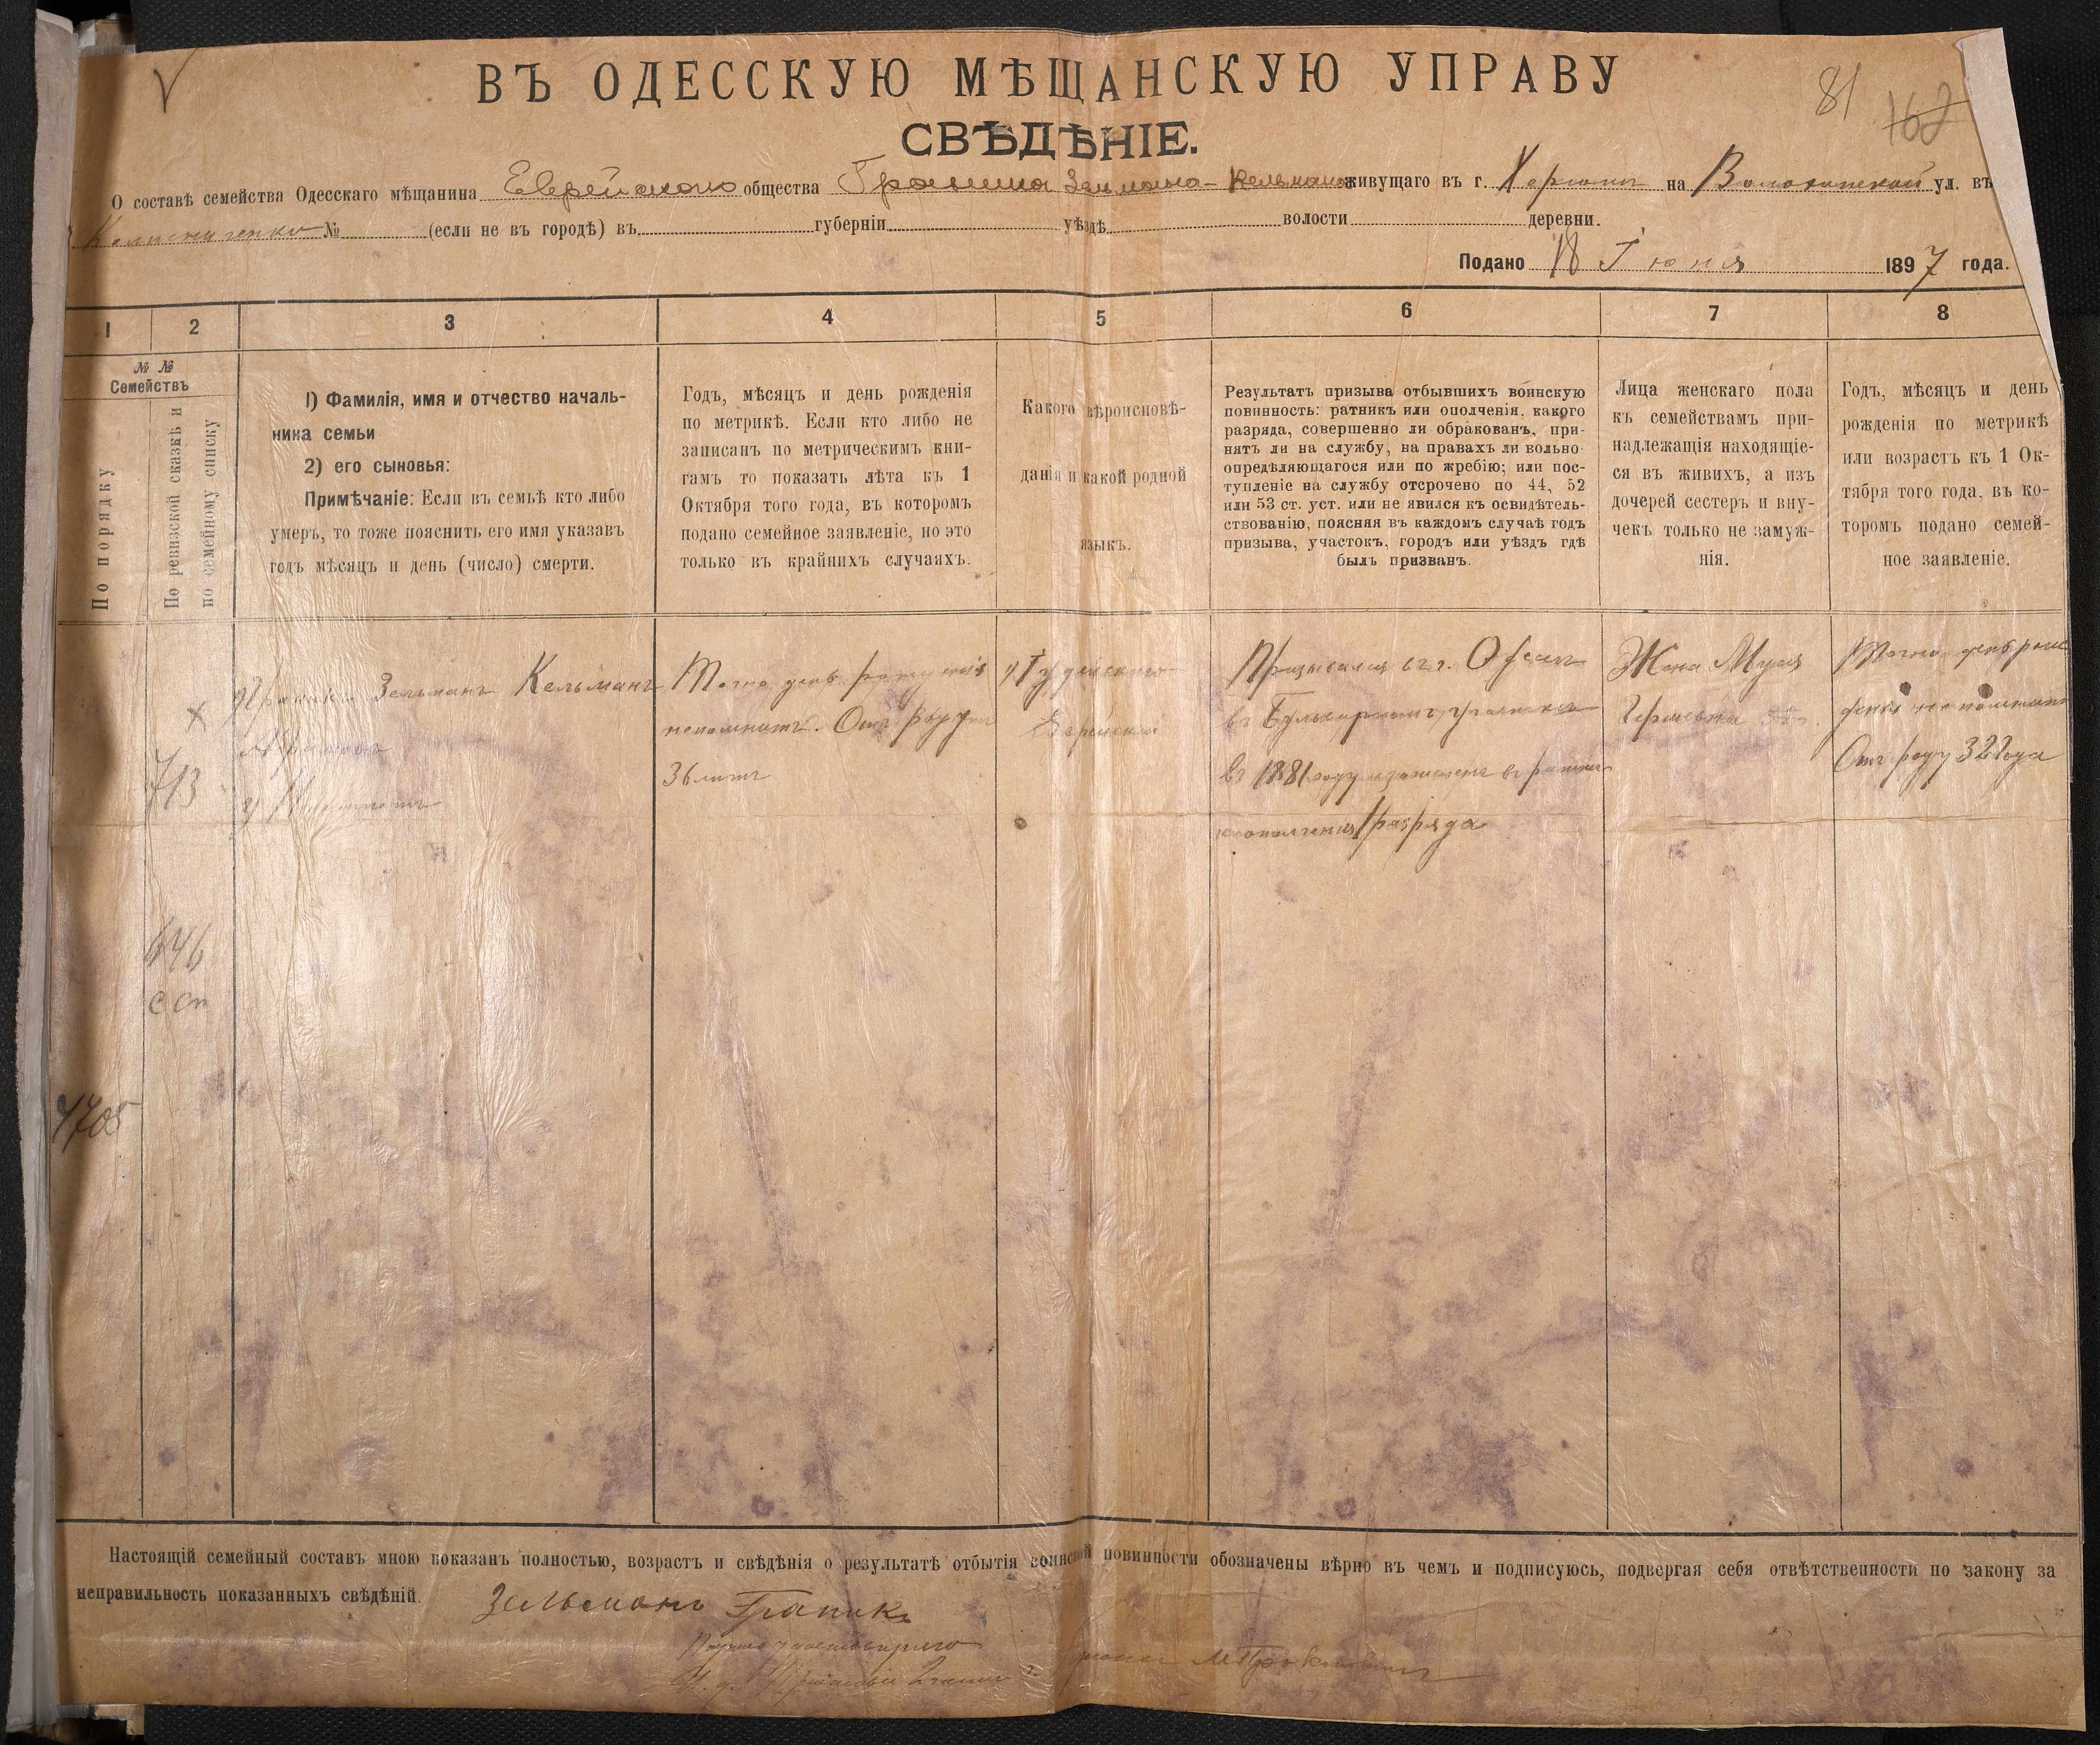 81
162
ВЪ ОДЕССКУЮ МѢЩАНСКУЮ УПРАВУ
СВѢДѢНІЕ.
О составѣ семейства Одесскаго мѣщанина Еврейскаго общества Зельмана-Кельмана живущаго въ г. Херсонѣ на ул. въ
№ (если не въ городѣ) въ губерніи уѣздѣ волости деревни.
Подано 18 Іюня 1897 года.
1 2 3 4 5 6 7 8
№ №
Семействъ
По порядку
По ревизской сказкѣ и
по семейному списку
1) Фамилія, имя и отчество началь-
ника семьи
2) его сыновья:
Примѣчаніе: Если въ семьѣ кто либо
умеръ, то тоже пояснить его имя указавъ
годъ мѣсяцъ и день (число) смерти.
Годъ, мѣсяцъ и день рожденія
по метрикѣ. Если кто либо не
записанъ по метрическимъ кни-
гамъ то показать лѣта къ 1
Октября того года, въ которомъ
подано семейное заявленіе, но это
только въ крайнихъ случаяхъ.
Какого вѣроисповѣ-
данія и какой родной
языкъ.
Результатъ призыва отбывшихъ воинскую
повинность: ратникъ или ополченія, какого
разряда, совершенно ли обракованъ, при-
нятъ ли на службу, на правахъ ли вольно-
опредѣляющагося или по жребію; или пос-
тупленіе на службу отсрочено по 44, 52
или 53 ст. уст. или не явился къ освидѣтель-
ствованію, поясняя въ каждомъ случаѣ годъ
призыва, участокъ, городъ или уѣздъ гдѣ
былъ призванъ.
Лица женскаго пола
къ семействамъ при-
надлежащія находящіе-
ся въ живихъ, а изъ
дочерей сестеръ и вну-
чекъ только не замуж-
нія.
Годъ, мѣсяцъ и день
рожденія по метрикѣ
или возрастъ къ 1 Ок-
тября того года, въ ко-
торомъ подано семей-
ное заявленіе.
713
646
4705
Зельманъ Кельманъ
Точно день рожденія
непомнитъ. Отъ роду
36 летъ
Іудейскаго
Еврейскій
Призывался въ г. Одессѣ
въ Бульварномъ участкѣ
въ 1881 году и зачисленъ въ ратни-
ки ополченія 1 разряда
Жена
Точно день рож
денія не помнитъ
Отъ роду 32 года
Настоящій семейный составъ мною показанъ полностью, возрастъ и свѣдѣнія о результатѣ отбытія воинской повинности обозначены вѣрно въ чемъ и подписуюсь, подвергая себя отвѣтственности по закону за
неправильность показанныхъ свѣдѣній. Зельманъ Граникъ